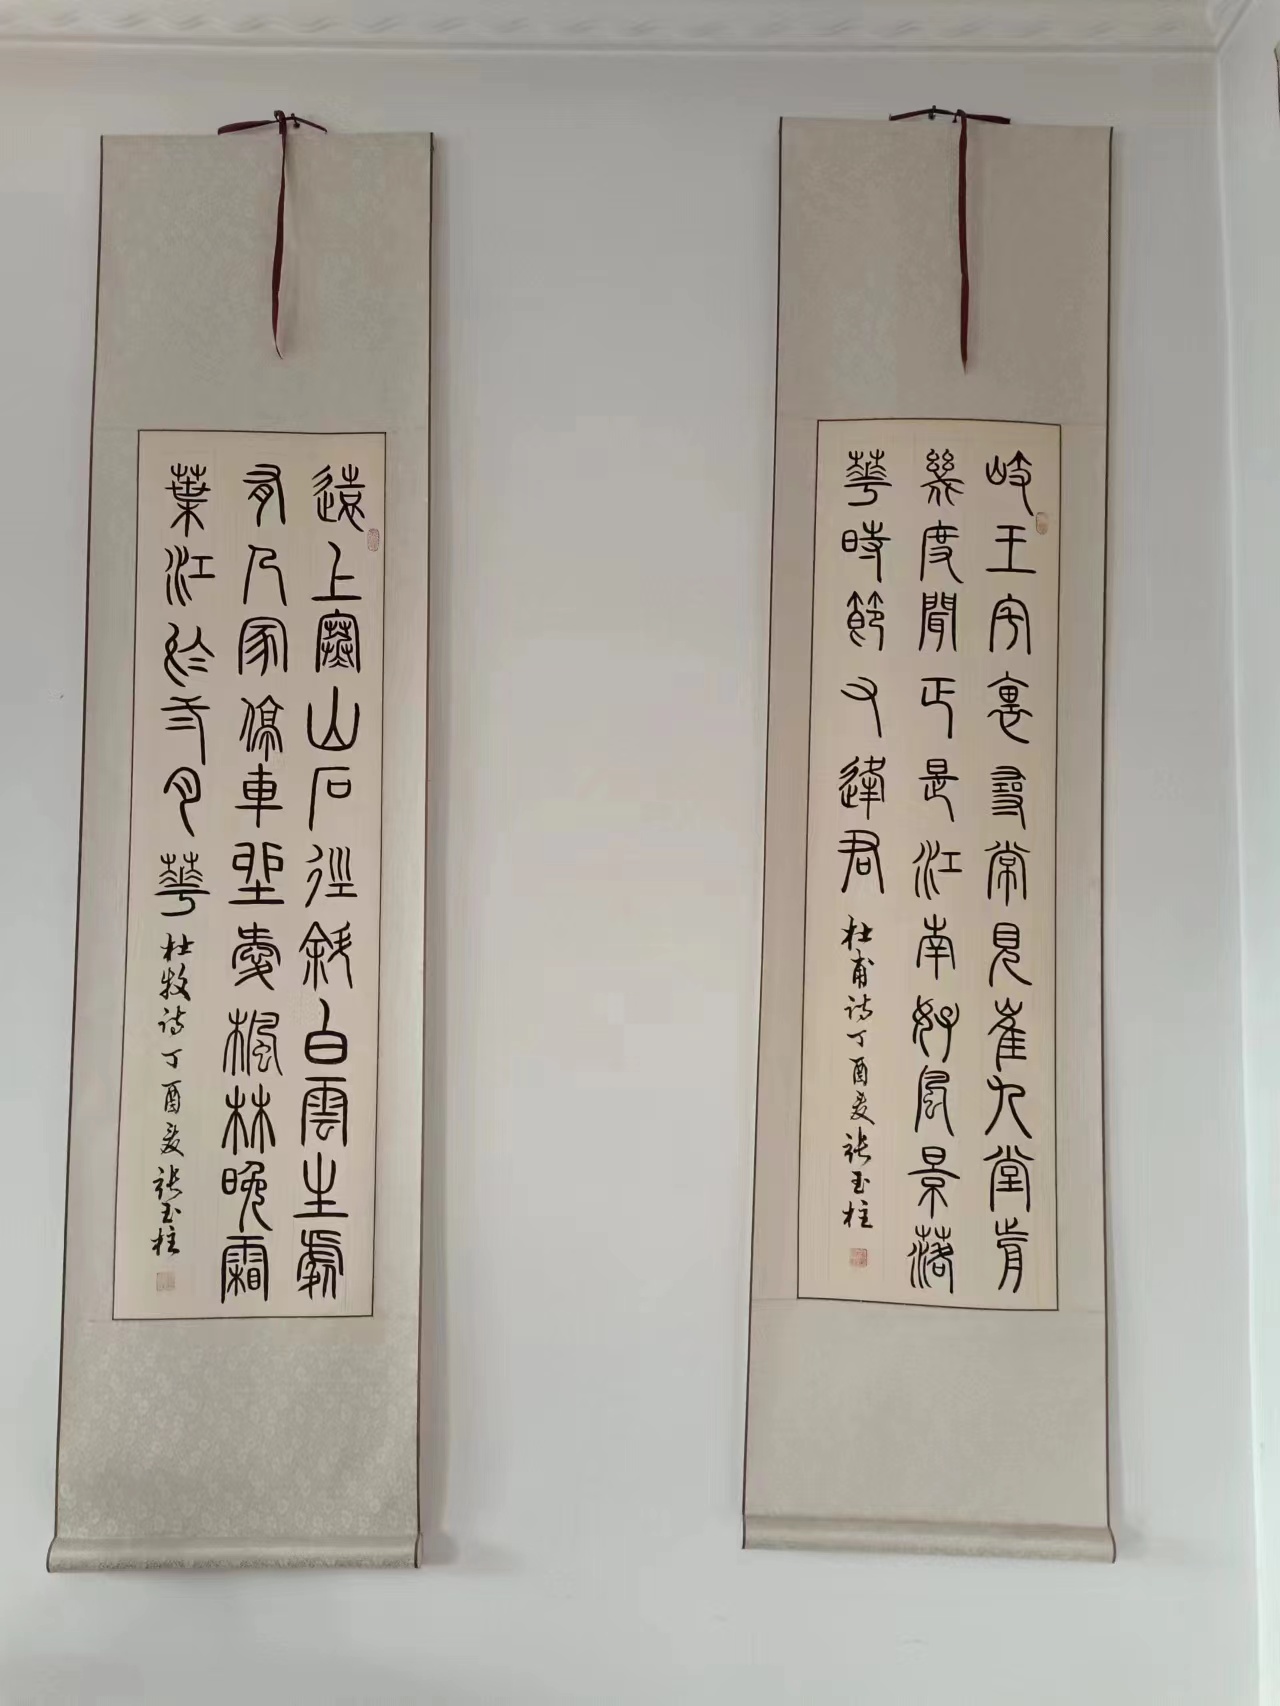 岐王宅裏尋常見崔九堂前
幾度聞正是江南好風景落
華時節又逢君 杜甫诗丁酉夏张玉柱
遠上寒山石徑斜白雲生處
有人家停車坐愛楓林晚霜
葉江於弍月華 杜牧诗丁酉夏张玉柱